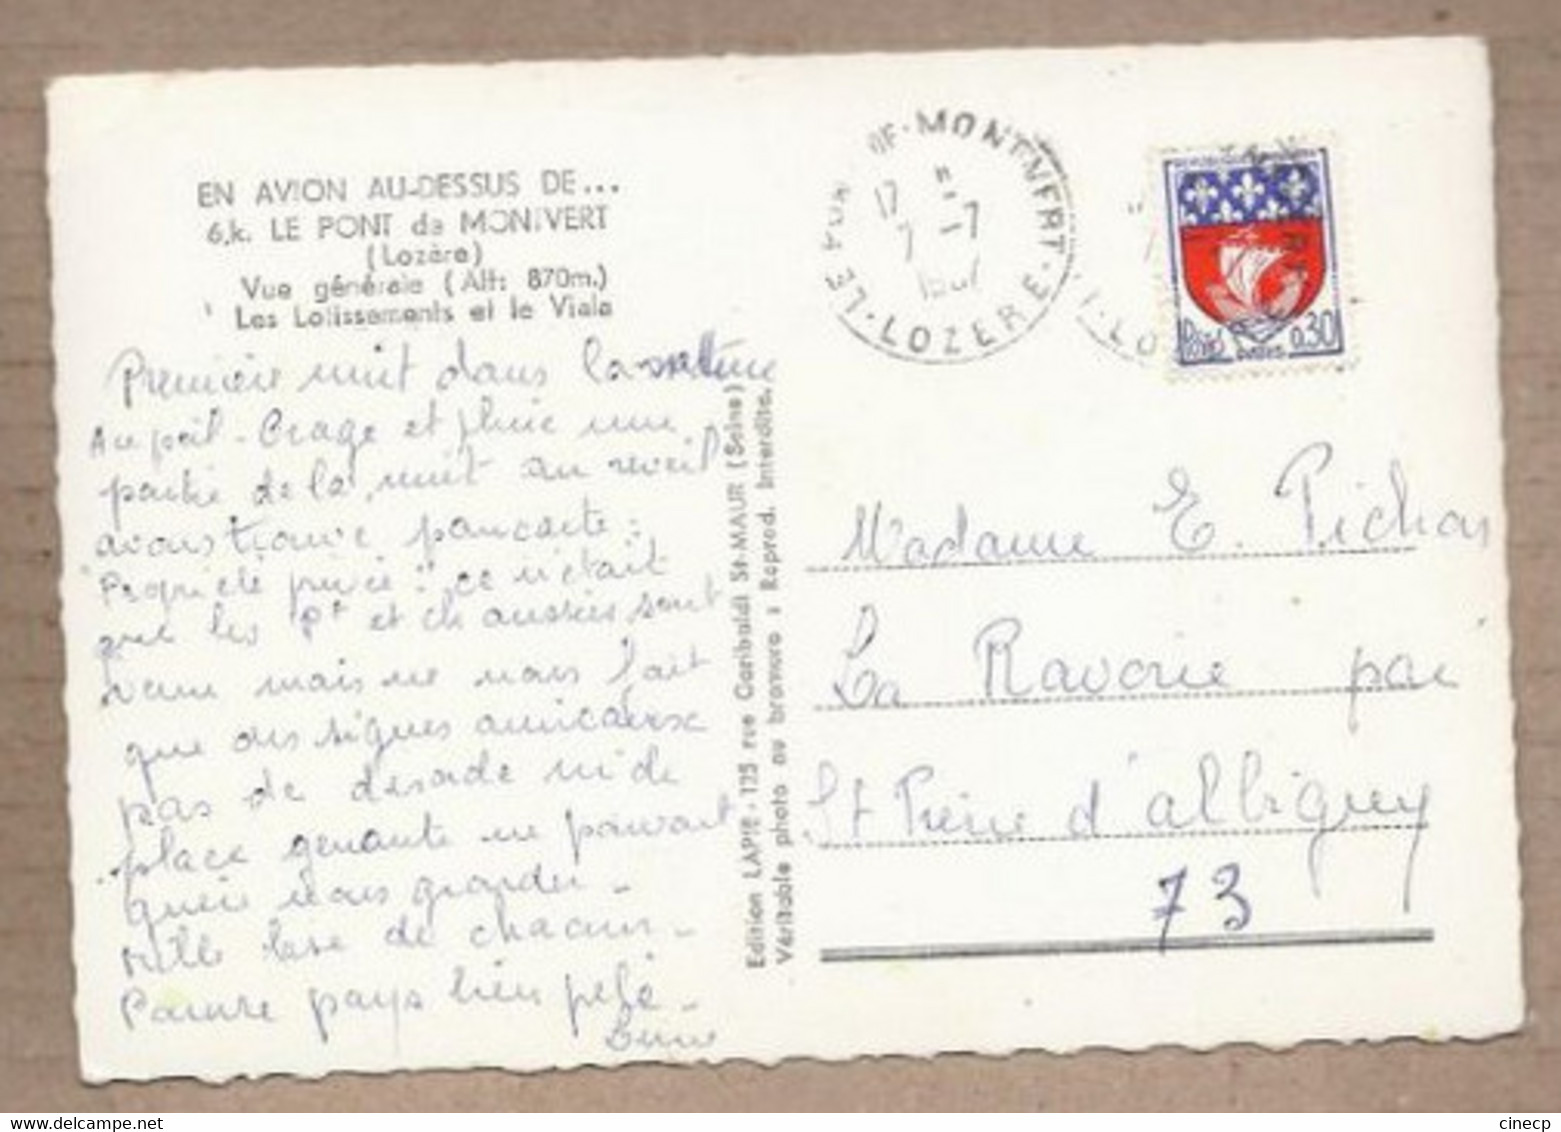 EN AVION AU-DESSUS DE...
6.k. LE PONT de MONTVERT
(Lozère)
Vue générale (Alt: 870m.)
Les Lotissements et le Viala
Première nuit dans la
Au poil - Orage et pluie une
partie de la nuit au reveil
avons trouvé pancarte :
"Propriété privée" ce n'était
que les Pt et chaussées sont
venu mais ne nous fait
que des signes amicaux
pas de désade ni de
place genante ne pouvait
mille de chacun -
Pauvre pays bien pelé -
Edition LAPIE - 125 rue Garibaldi St-MAUR (Seine)
Véritable photo au bromure : Reprod. Interdite.
MONTVERT
LOZERE
17
7 -7
0,30
Madame E. Pichon
La Ravoire par
St Pierre d'albigny
73
cinecp